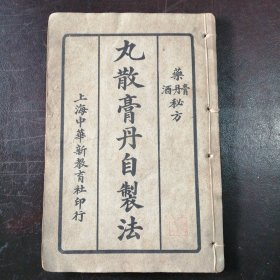 藥酒膏丹秘方
丸散膏丹自製法
上海中華新教育社印行